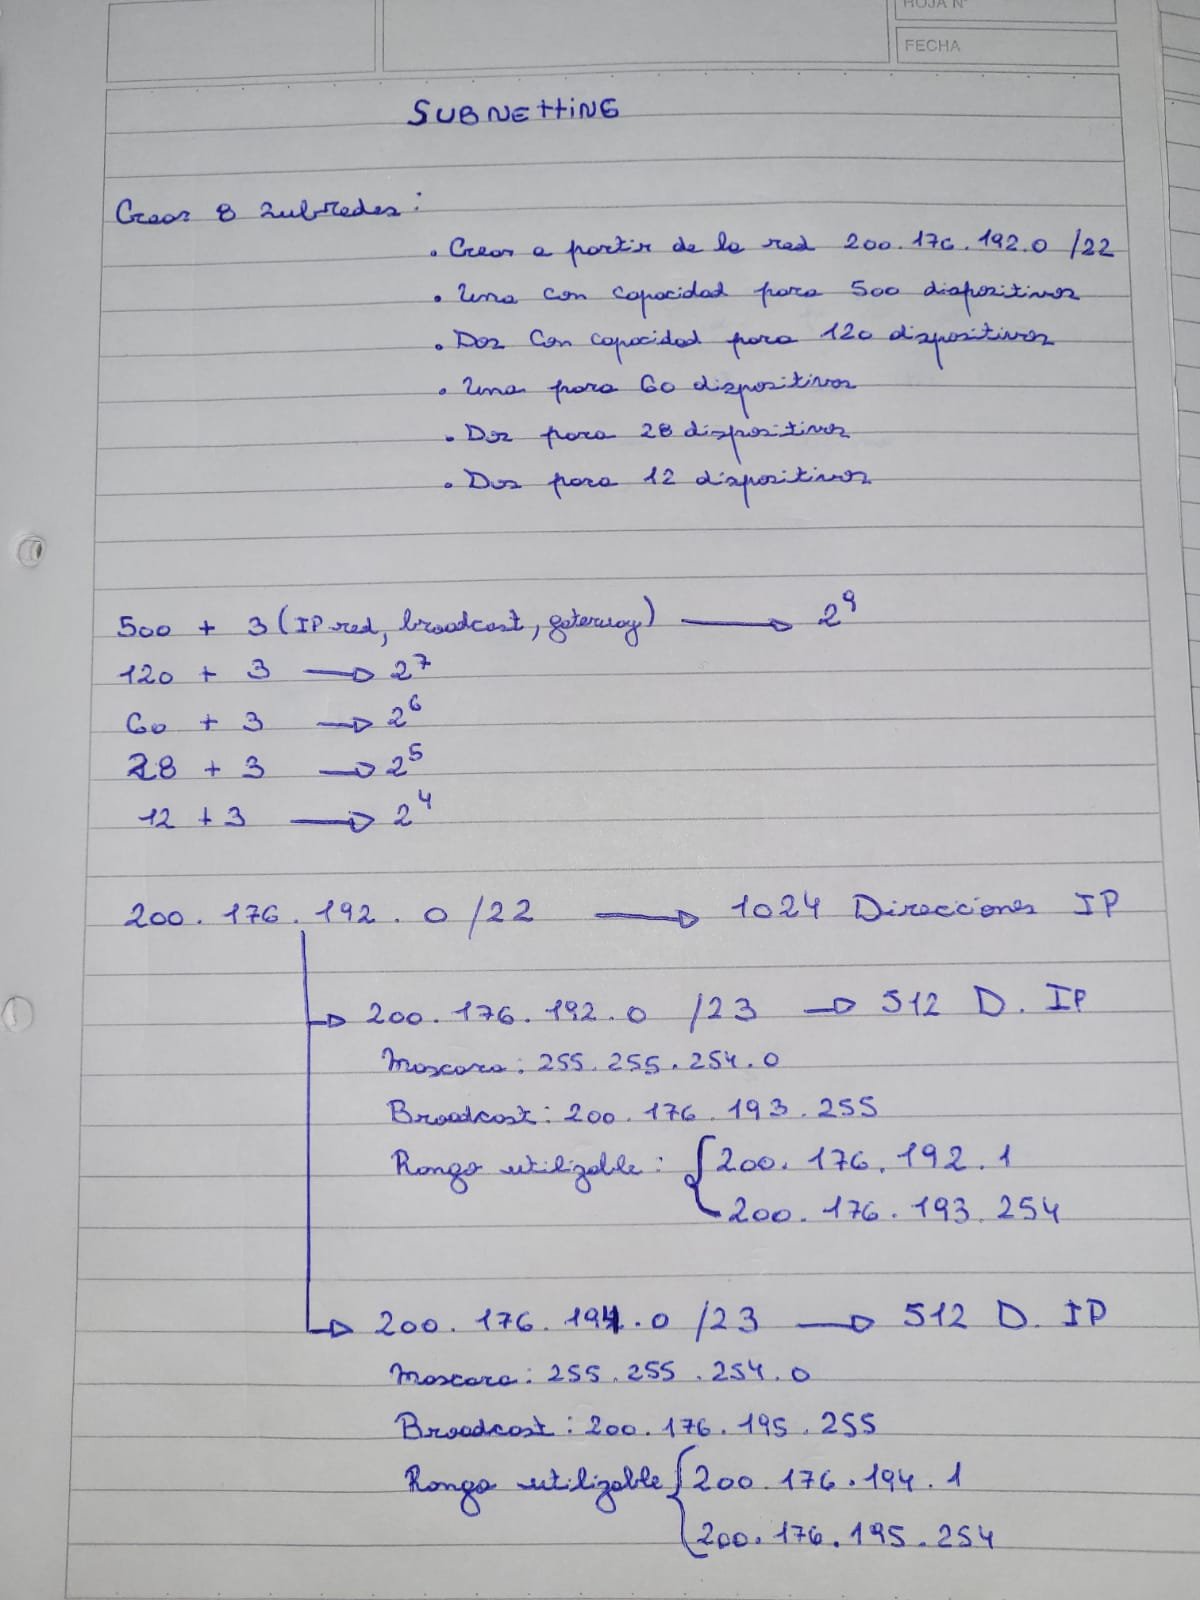 HOJA Nº
FECHA
SUBNETTING
Crear 8 subredes:
• Crear a partir de la red 200.176.192.0 /22
• Una con capacidad para 500 dispositivos
• Dos con capacidad para 120 dispositivos
• Una para 60 dispositivos
• Dos para 28 dispositivos
• Dos para 12 dispositivos
500 + 3 (IP red, broadcast, gateway) → 2⁹
120 + 3 → 2⁷
60 + 3 → 2⁶
28 + 3 → 2⁵
12 + 3 → 2⁴
200.176.192.0 /22 → 1024 Direcciones IP
200.176.192.0 /23 → 512 D. IP
Mascara: 255.255.254.0
Broadcast: 200.176.193.255
Rango utilizable: { 200.176.192.1
200.176.193.254
200.176.194.0 /23 → 512 D. IP
Mascara: 255.255.254.0
Broadcast: 200.176.195.255
Rango utilizable { 200.176.194.1
200.176.195.254